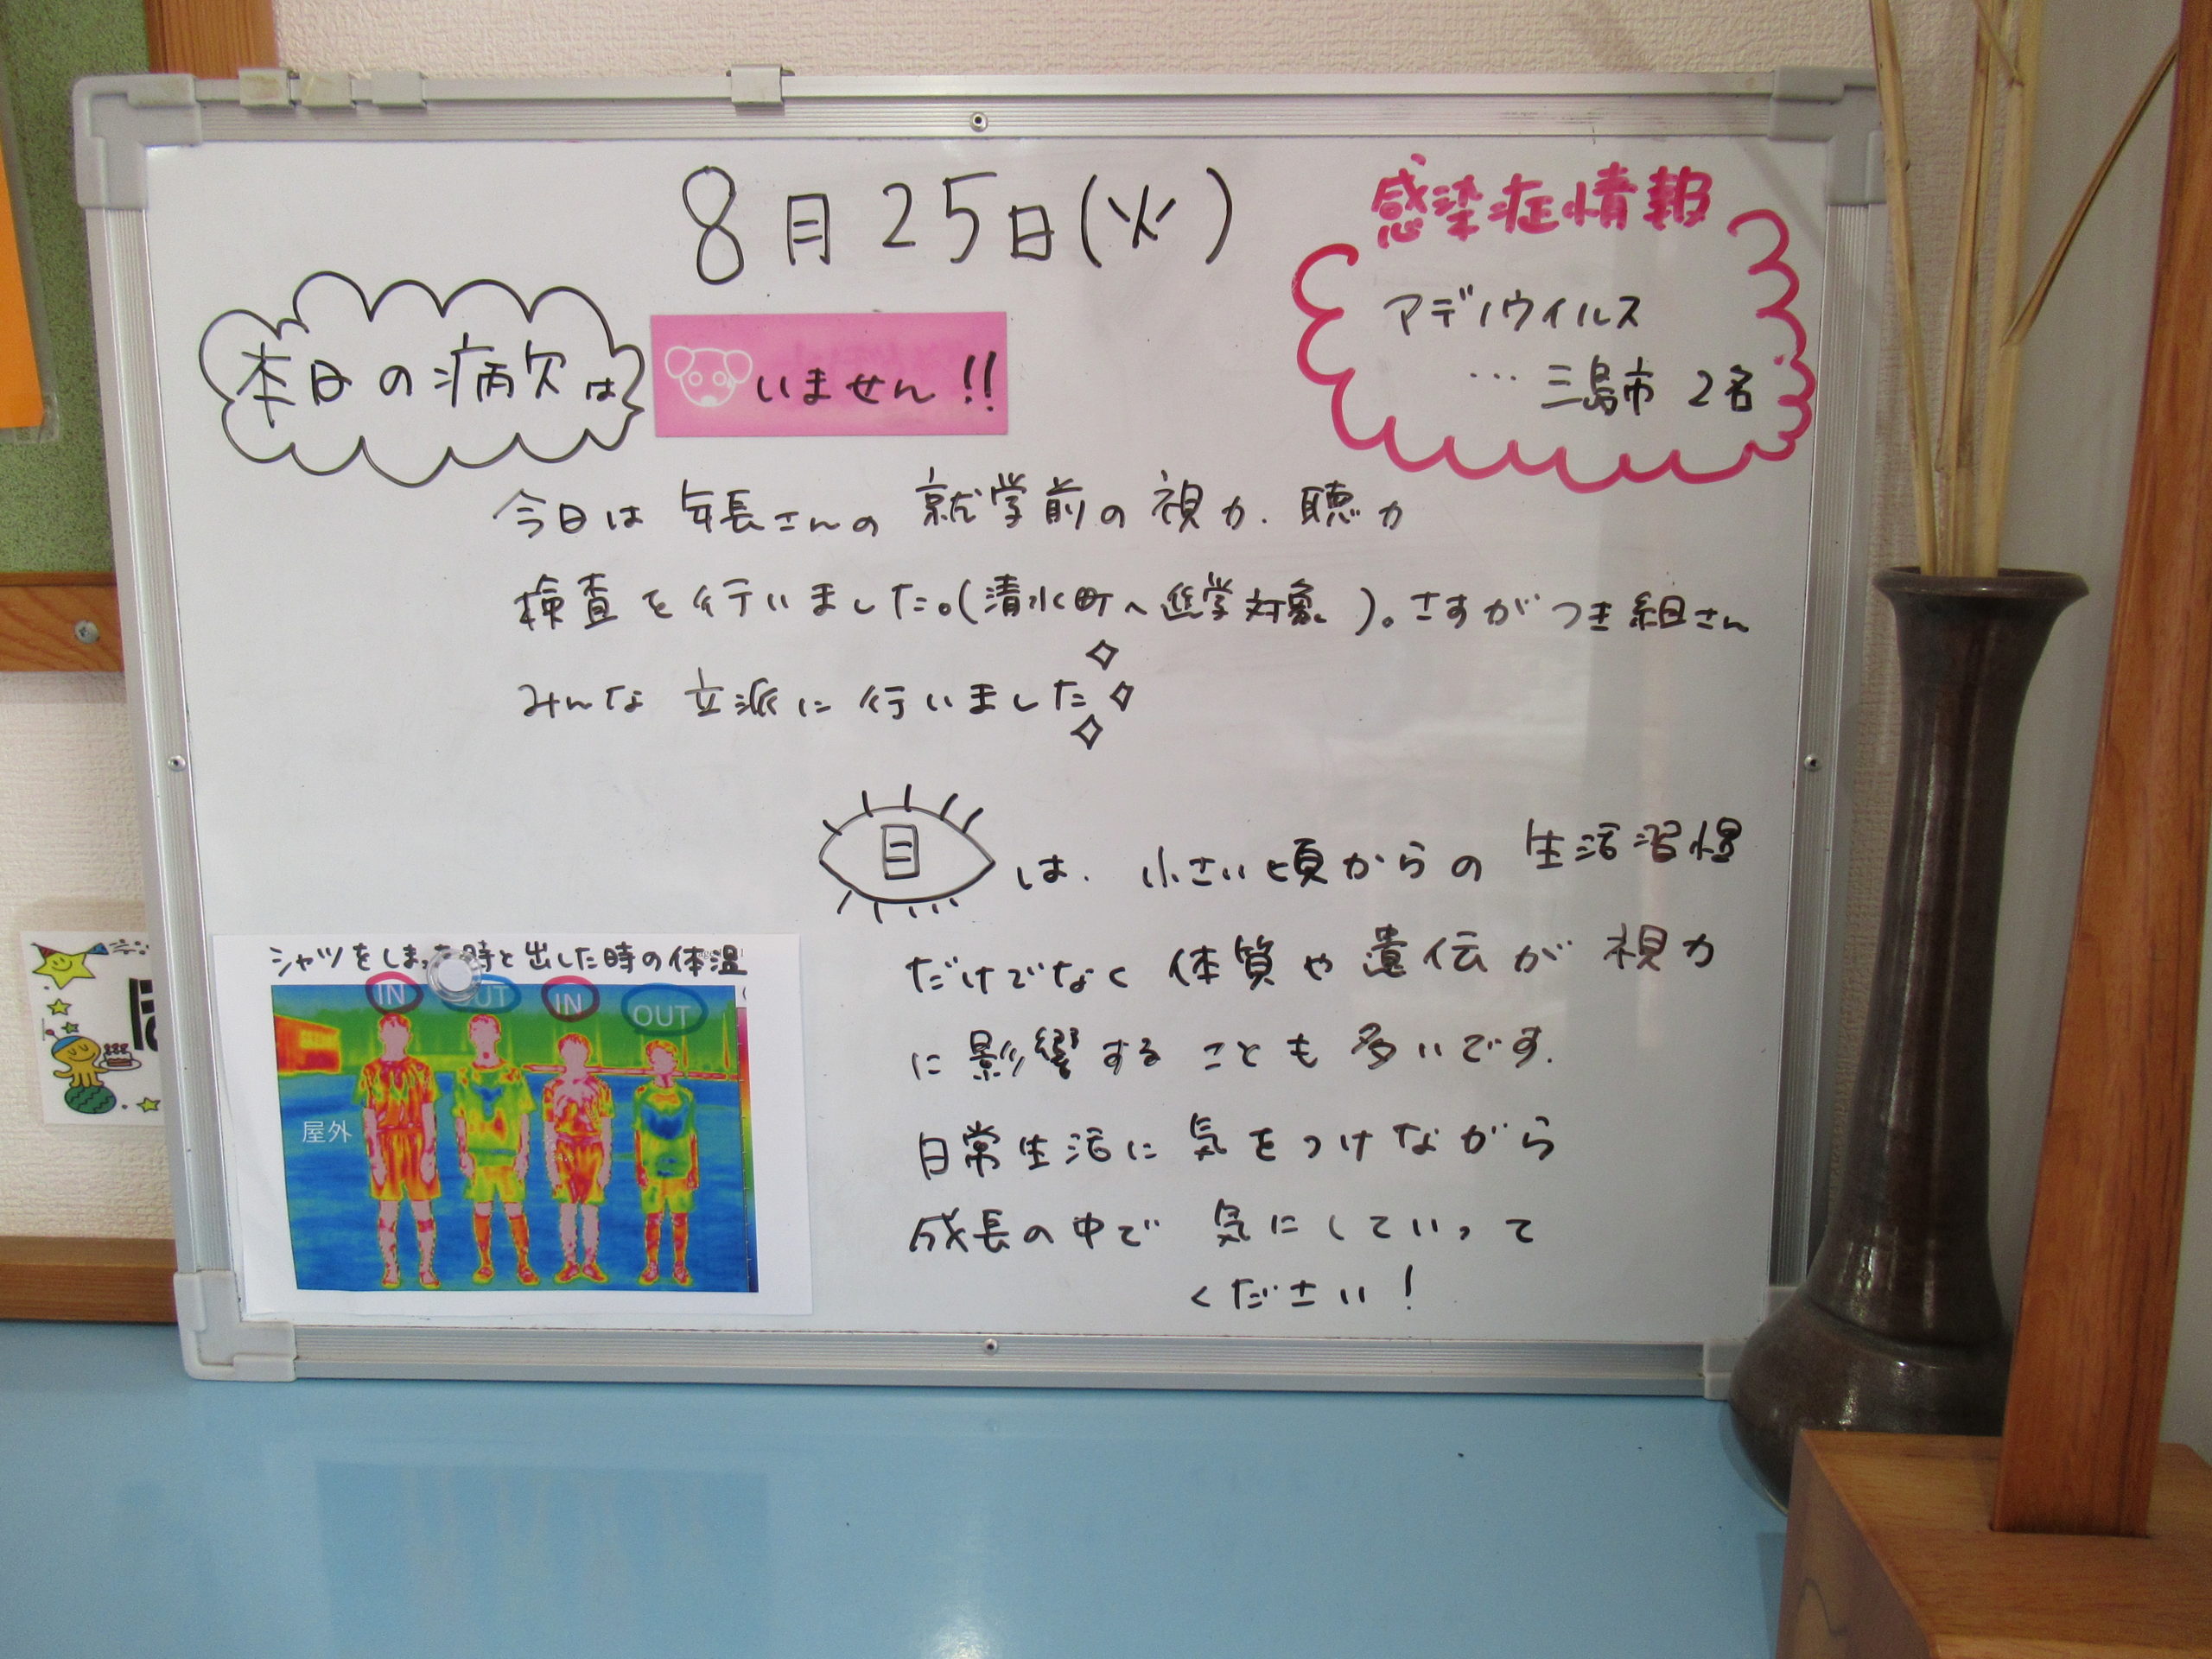 8月25日(火)
感染症情報
アデノウイルス
… 三島市 2名
本日の病欠は
いません!!
今日は 年長さんの 就学前の 視力. 聴力
検査を行いました。(清水町へ進学対象)。さすがつき組さん
みんな 立派に 行いました
目は、小さい頃からの 生活習慣
だけでなく 体質や 遺伝が 視力
に影響する ことも 多いです.
日常生活に 気をつけながら
成長の中で 気にしていって
ください!
シャツをしまった時と出した時の体温
IN OUT IN OUT
屋外